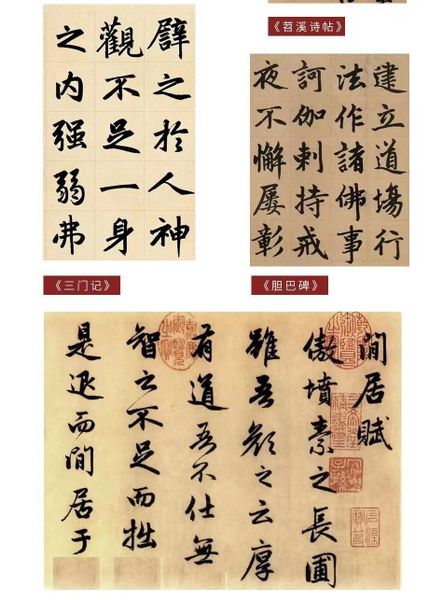 《苕溪诗帖》
譬之於人神
觀不足一身
之内强弱弗
《三门记》
建立道場行
法作諸佛事
訶伽剌持戒
夜不懈屢彰
《胆巴碑》
閒居賦
傲墳素之長圃
雖吾顏之云厚
有道吾不仕無
智之不足而拙
是退而閒居于